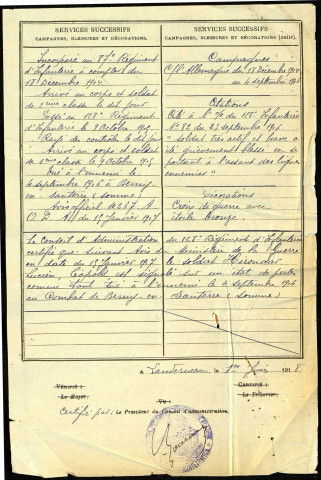 SERVICES SUCCESSIFS
CAMPAGNES, BLESSURES ET DÉCORATIONS.
Incorporé au 87e Régiment
d'Infanterie à compter du
18 Décembre 1914
Arrivé au corps et soldat
de 2ème classe le dit jour
Passé au 128e Régiment
d'Infanterie le 9 Octobre 1915
Rayé des contrôles le dit jour
Arrivé au corps et soldat
de 2e classe le 9 Octobre 1915
Tué à l'ennemi le
4 septembre 1916 à Berny-
en-Santerre (Somme)
Avis officiel
du 15 Janvier 1917
SERVICES SUCCESSIFS
CAMPAGNES, BLESSURES ET DÉCORATIONS (SUITE).
Campagnes
C/ l'Allemagne du 18 Décembre 1914
au 4 septembre 1916
Citations
Cité à l'
du 23 septembre 1916
"soldat très actif et brave a
été grièvement blessé en se
portant à l'assaut des lignes
ennemies"
Décorations
Croix de guerre avec
étoile bronze
Le Conseil d'Administration du 128e Régiment d'Infanterie
certifie que suivant Avis du Ministère de la Guerre
en date du 15 Janvier 1917 le soldat
Lucien, Léopold est signalé sur un état de pertes
comme étant "tué" à l'ennemi le 4 septembre 1916
au Combat de Berny-en-Santerre (Somme)
A Landerneau, le 1er Juin 1918
Vérifié :
Le Major,
Vu :
Certifié :
Le Trésorier,
Certifié par : Le Président du Conseil d'administration,